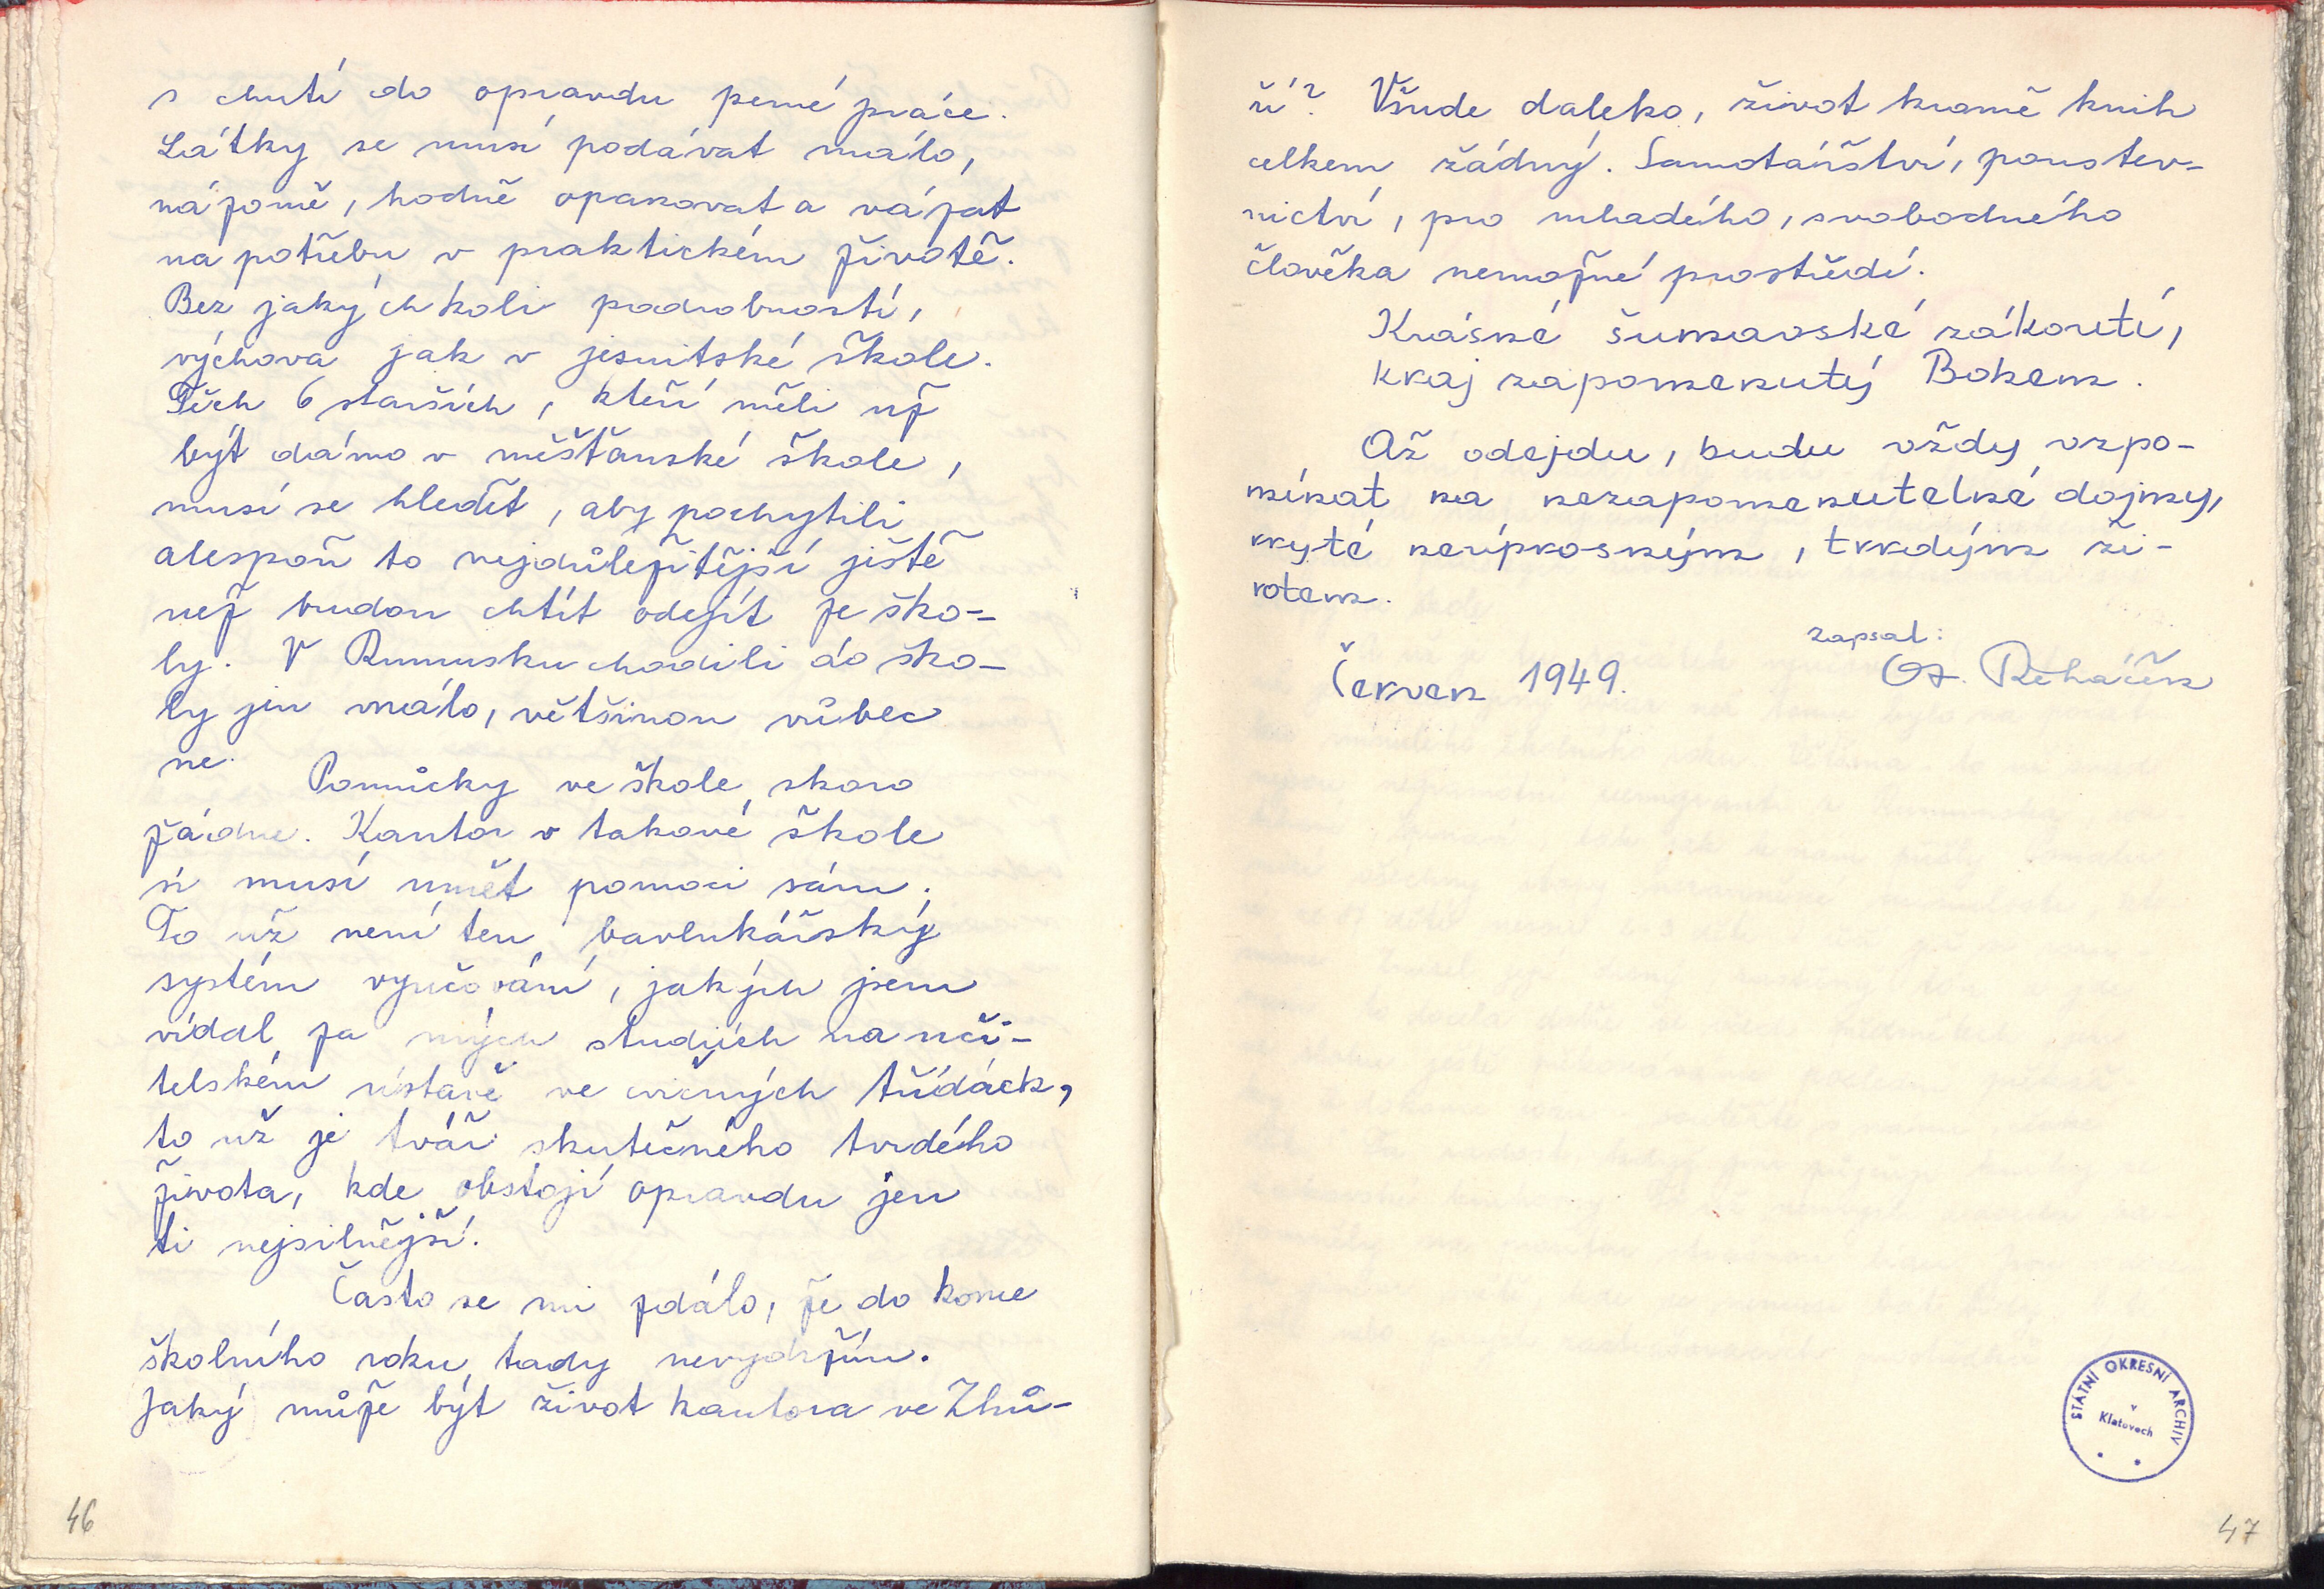 s chutí do opravdu perné práce.
Látky se musí podávat málo,
názorně, hodně opakovat a vázat
na potřebu v praktickém životě.
Bez jakýchkoli podrobností,
výchova jak v jesuitské škole.
Těch 6 starších, kteří měli už
být dávno v měšťanské škole,
musí se hledět, aby pochytili
alespoň to nejdůležitější ještě
než budou chtít odejít ze ško-
ly. V Rumunsku chodili do ško-
ly jen málo, většinou vůbec
ne.
Pomůcky ve škole skoro
žádné. Kantor v takové škole
si musí umět pomoci sám.
To už není ten bavlnkářský
systém vyučování, jakých jsem
vídal za mých studiích na uči-
telském ústavě ve cvičných třídách,
to už je tvář skutečného tvrdého
života, kde obstojí opravdu jen
ti nejsilnější.
Často se mi zdálo, že do konce
školního roku tady nevydržím.
Jaký může být život kantora ve Zhů-
ří? Všude daleko, život kromě knih
celkem žádný. Samotářství, poustev-
nictví, pro mladého, svobodného
člověka nemožné prostředí.
Krásné šumavské zákoutí,
kraj zapomenutý Bohem.
Až odejdu, budu vždy vzpo-
mínat na nezapomenutelné dojmy,
ryté neúprosným, tvrdým ži-
votem.
zapsal:
Červen 1949. Ot. Řeháček
STÁTNÍ OKRESNÍ ARCHIV
v
Klatovech
46
47